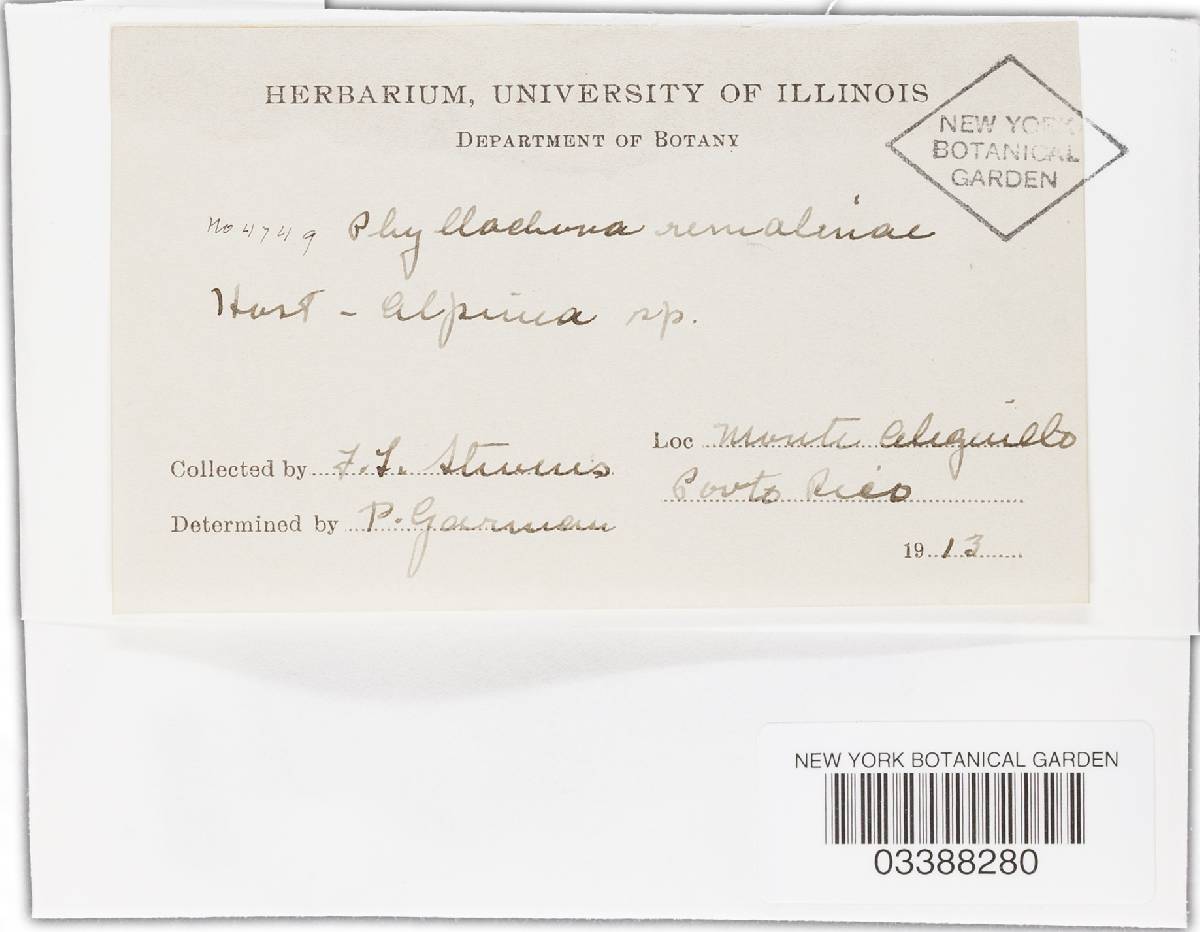 HERBARIUM, UNIVERSITY OF ILLINOIS
DEPARTMENT OF BOTANY
NEW YORK
BOTANICAL
GARDEN
No 4749 Phyllachora renalmiae
Host - Alpinia sp.
Loc Monte Alegrillo
Porto Rico
Collected by F. L. Stevens
Determined by P. Garman
1913
NEW YORK BOTANICAL GARDEN
03388280